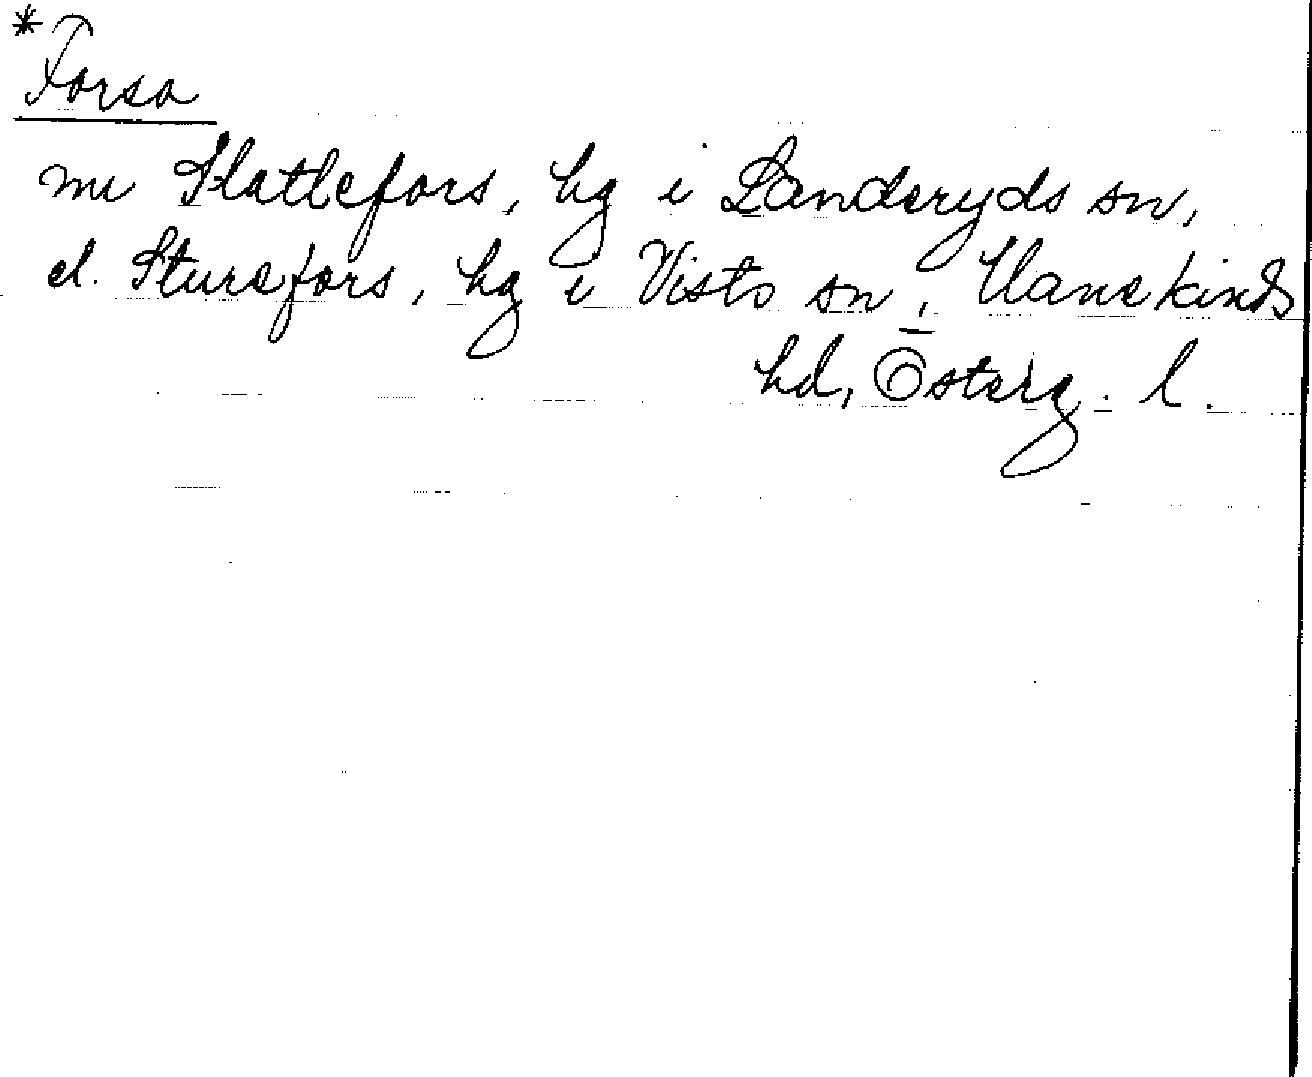 *Forsa
nu Slatlefors, hg i Landeryds sn,
el. Sturefors, hg i Vists sn, Hanekinds
hd, Österg. l.